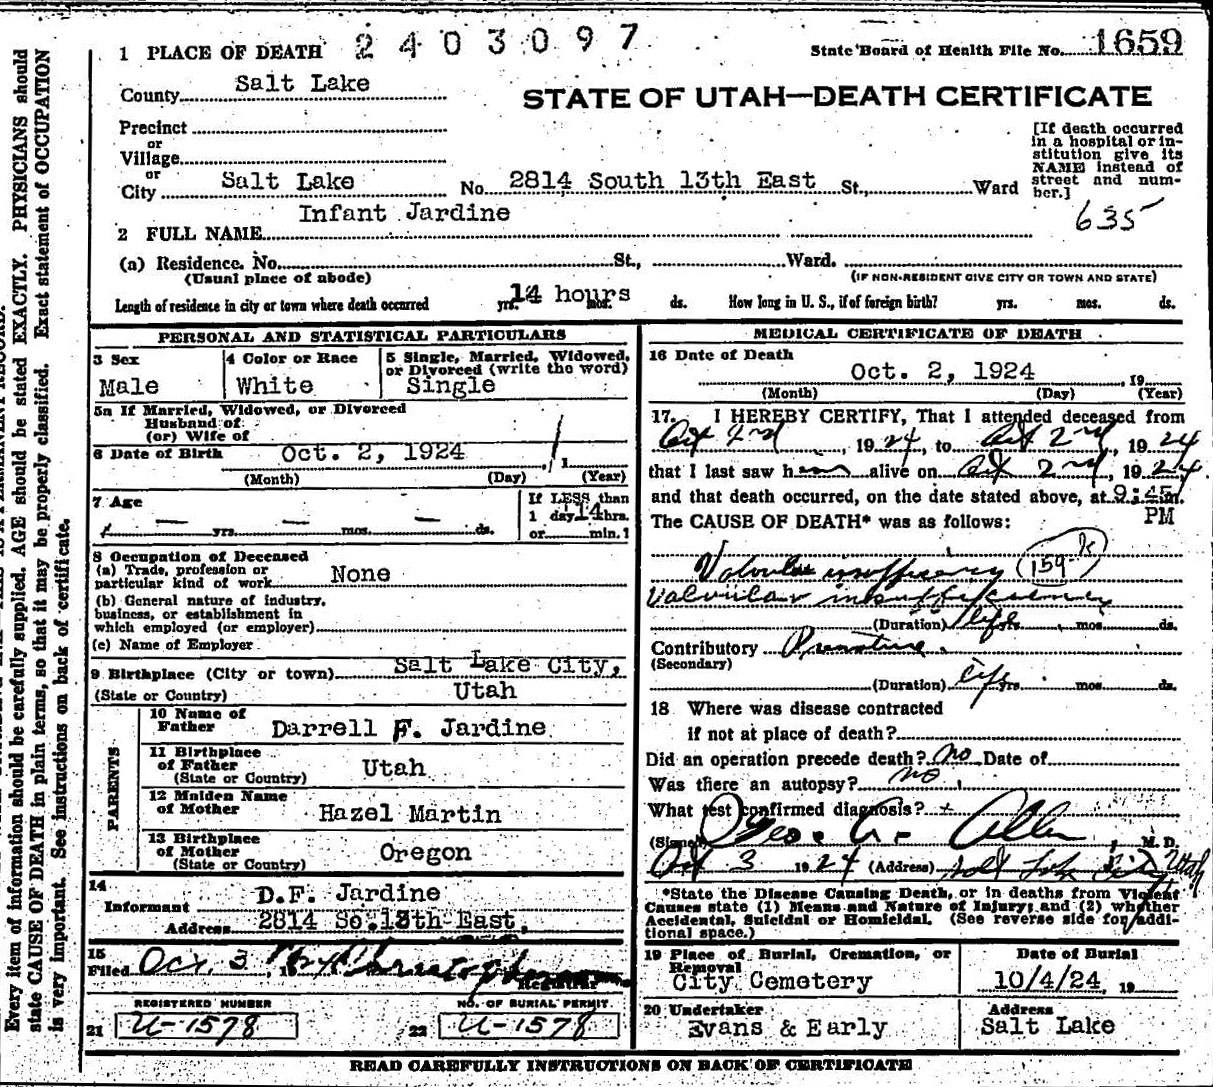 1 PLACE OF DEATH 2403097
State Board of Health File No. 1659
County Salt Lake
STATE OF UTAH—DEATH CERTIFICATE
Precinct
or
Village
or
City Salt Lake No. 2814 South 13th East St., Ward
[If death occurred
in a hospital or in-
stitution give its
NAME instead of
street and num-
ber.]
635
Infant Jardine
2 FULL NAME
(a) Residence. No. St., Ward.
(Usual place of abode) (IF NON-RESIDENT GIVE CITY OR TOWN AND STATE)
Length of residence in city or town where death occurred yrs. 14 hours mos. ds. How long in U. S., if of foreign birth? yrs. mos. ds.
PERSONAL AND STATISTICAL PARTICULARS
3 Sex
Male
4 Color or Race
White
5 Single, Married, Widowed,
or Divorced (write the word)
Single
5a If Married, Widowed, or Divorced
Husband of
(or) Wife of
6 Date of Birth Oct. 2, 1924, 1
(Month) (Day) (Year)
7 Age
yrs. mos. ds.
If LESS than
1 day 14 hrs.
or min. ?
8 Occupation of Deceased
(a) Trade, profession or
particular kind of work None
(b) General nature of industry,
business, or establishment in
which employed (or employer)
(c) Name of Employer
9 Birthplace (City or town) Salt Lake City,
(State or Country) Utah
PARENTS
10 Name of
Father Darrell F. Jardine
11 Birthplace
of Father Utah
(State or Country)
12 Maiden Name
of Mother Hazel Martin
13 Birthplace
of Mother Oregon
(State or Country)
14
Informant D.F. Jardine
Address 2814 So.13th East,
15
Filed Oct. 3
Registrar
REGISTERED NUMBER
21 U-1578
NO. OF BURIAL PERMIT
22 U-1578
MEDICAL CERTIFICATE OF DEATH
16 Date of Death
Oct. 2, 1924, 19
(Month) (Day) (Year)
17. I HEREBY CERTIFY, That I attended deceased from
Oct 2nd, 1924, to Oct 2nd, 1924
that I last saw him alive on Oct 2nd, 1924.
and that death occurred, on the date stated above, at 9:45 m.
PM
The CAUSE OF DEATH* was as follows:
Valvular insufficiency 159
Valvular insufficiency
(Duration) life yrs. mos. ds.
Contributory Premature.
(Secondary)
(Duration) life yrs. mos. ds.
18 Where was disease contracted
if not at place of death?
Did an operation precede death? no Date of
Was there an autopsy? no
What test confirmed diagnosis?
(Signed) Geo. A. Allen, M. D.
Oct 3 1924 (Address) Salt Lake City Utah
*State the Disease Causing Death, or in deaths from Violent
Causes state (1) Means and Nature of Injury; and (2) whether
Accidental, Suicidal or Homicidal. (See reverse side for addi-
tional space.)
19 Place of Burial, Cremation, or
Removal
City Cemetery
Date of Burial
10/4/24, 19
20 Undertaker
Evans & Early
Address
Salt Lake
READ CAREFULLY INSTRUCTIONS ON BACK OF CERTIFICATE
Every item of information should be carefully supplied. AGE should be stated EXACTLY. PHYSICIANS should
state CAUSE OF DEATH in plain terms, so that it may be properly classified. Exact statement of OCCUPATION
is very important. See instructions on back of certificate.